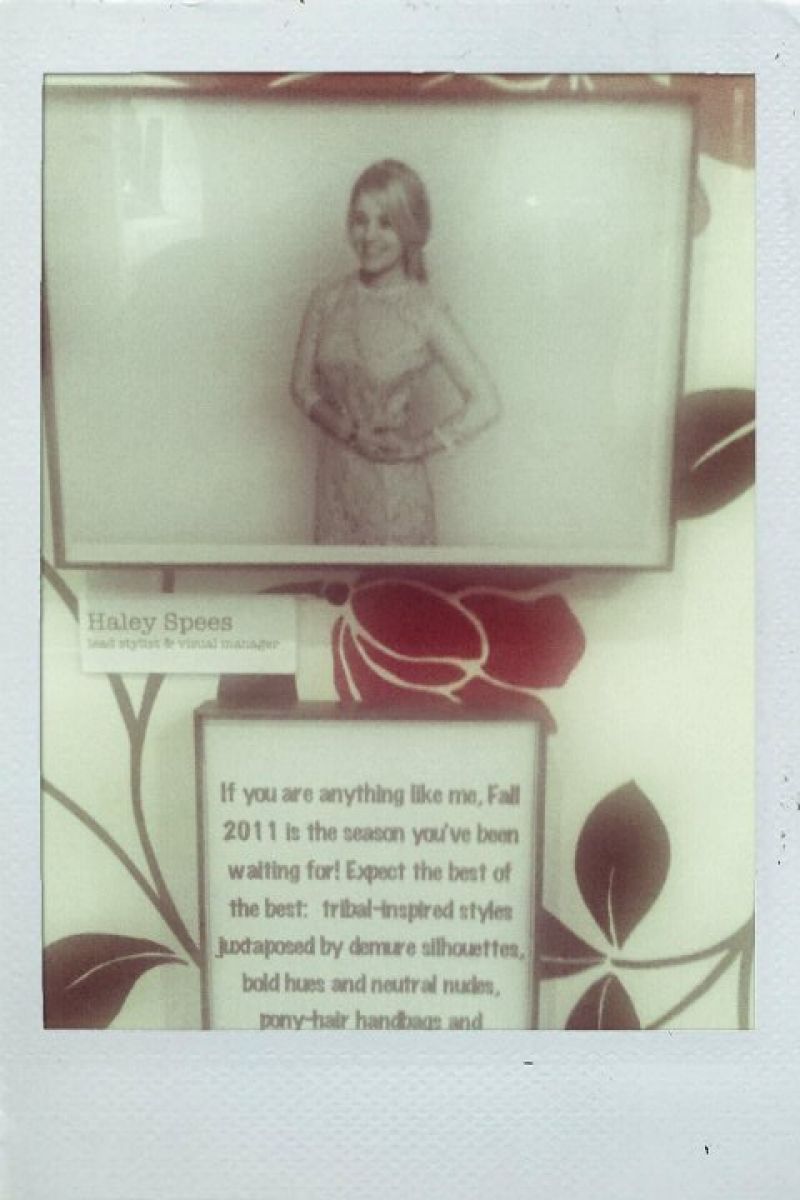 Haley Spees
lead stylist & visual manager
If you are anything like me, Fall
2011 is the season you've been
waiting for! Expect the best of
the best: tribal-inspired styles
juxtaposed by demure silhouettes,
bold hues and neutral nudes,
pony-hair handbags and